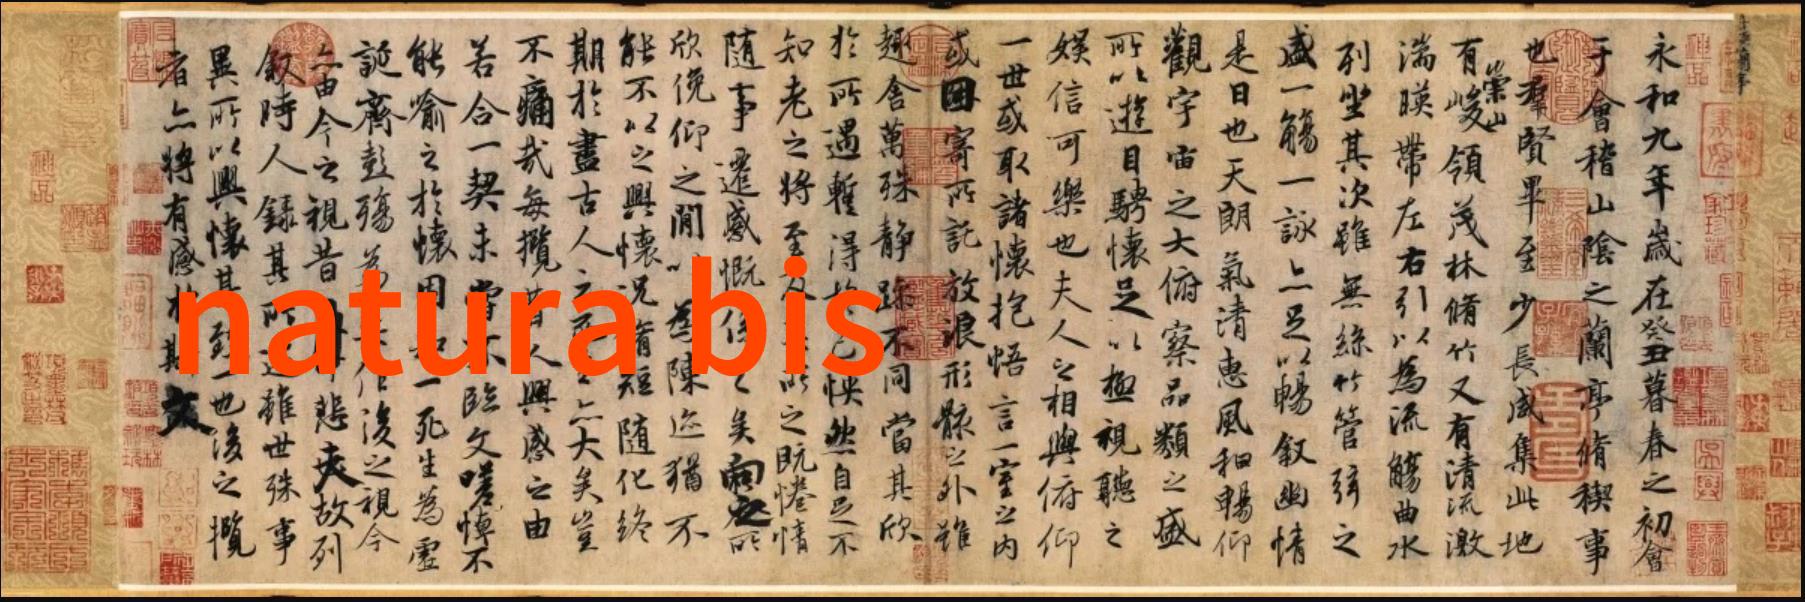 永和九年歲在癸丑暮春之初會
于會稽山陰之蘭亭脩稧事
也羣賢畢至少長咸集此地
有崇山峻領茂林脩竹又有清流激
湍暎帶左右引以為流觴曲水
列坐其次雖無絲竹管弦之
盛一觴一詠亦足以暢叙幽情
是日也天朗氣清惠風和暢仰
觀宇宙之大俯察品類之盛
所以遊目騁懷足以極視聽之
娛信可樂也夫人之相與俯仰
一世或取諸懷抱悟言一室之內
或因寄所託放浪形骸之外雖
趣舍萬殊静躁不同當其欣
於所遇蹔得於己怏然自足不
知老之將至及其所之既惓情
隨事遷感慨係之矣向之所
欣俛仰之閒以為陳迹猶不
能不以之興懷況脩短隨化終
期於盡古人云死生亦大矣豈
不痛哉每攬昔人興感之由
若合一契未嘗不臨文嗟悼不
能喻之於懷固知一死生為虛
誕齊彭殤為妄作後之視今
亦由今之視昔悲夫故列
叙時人錄其所述雖世殊事
異所以興懷其致一也後之攬
者亦將有感於斯文
natura bis